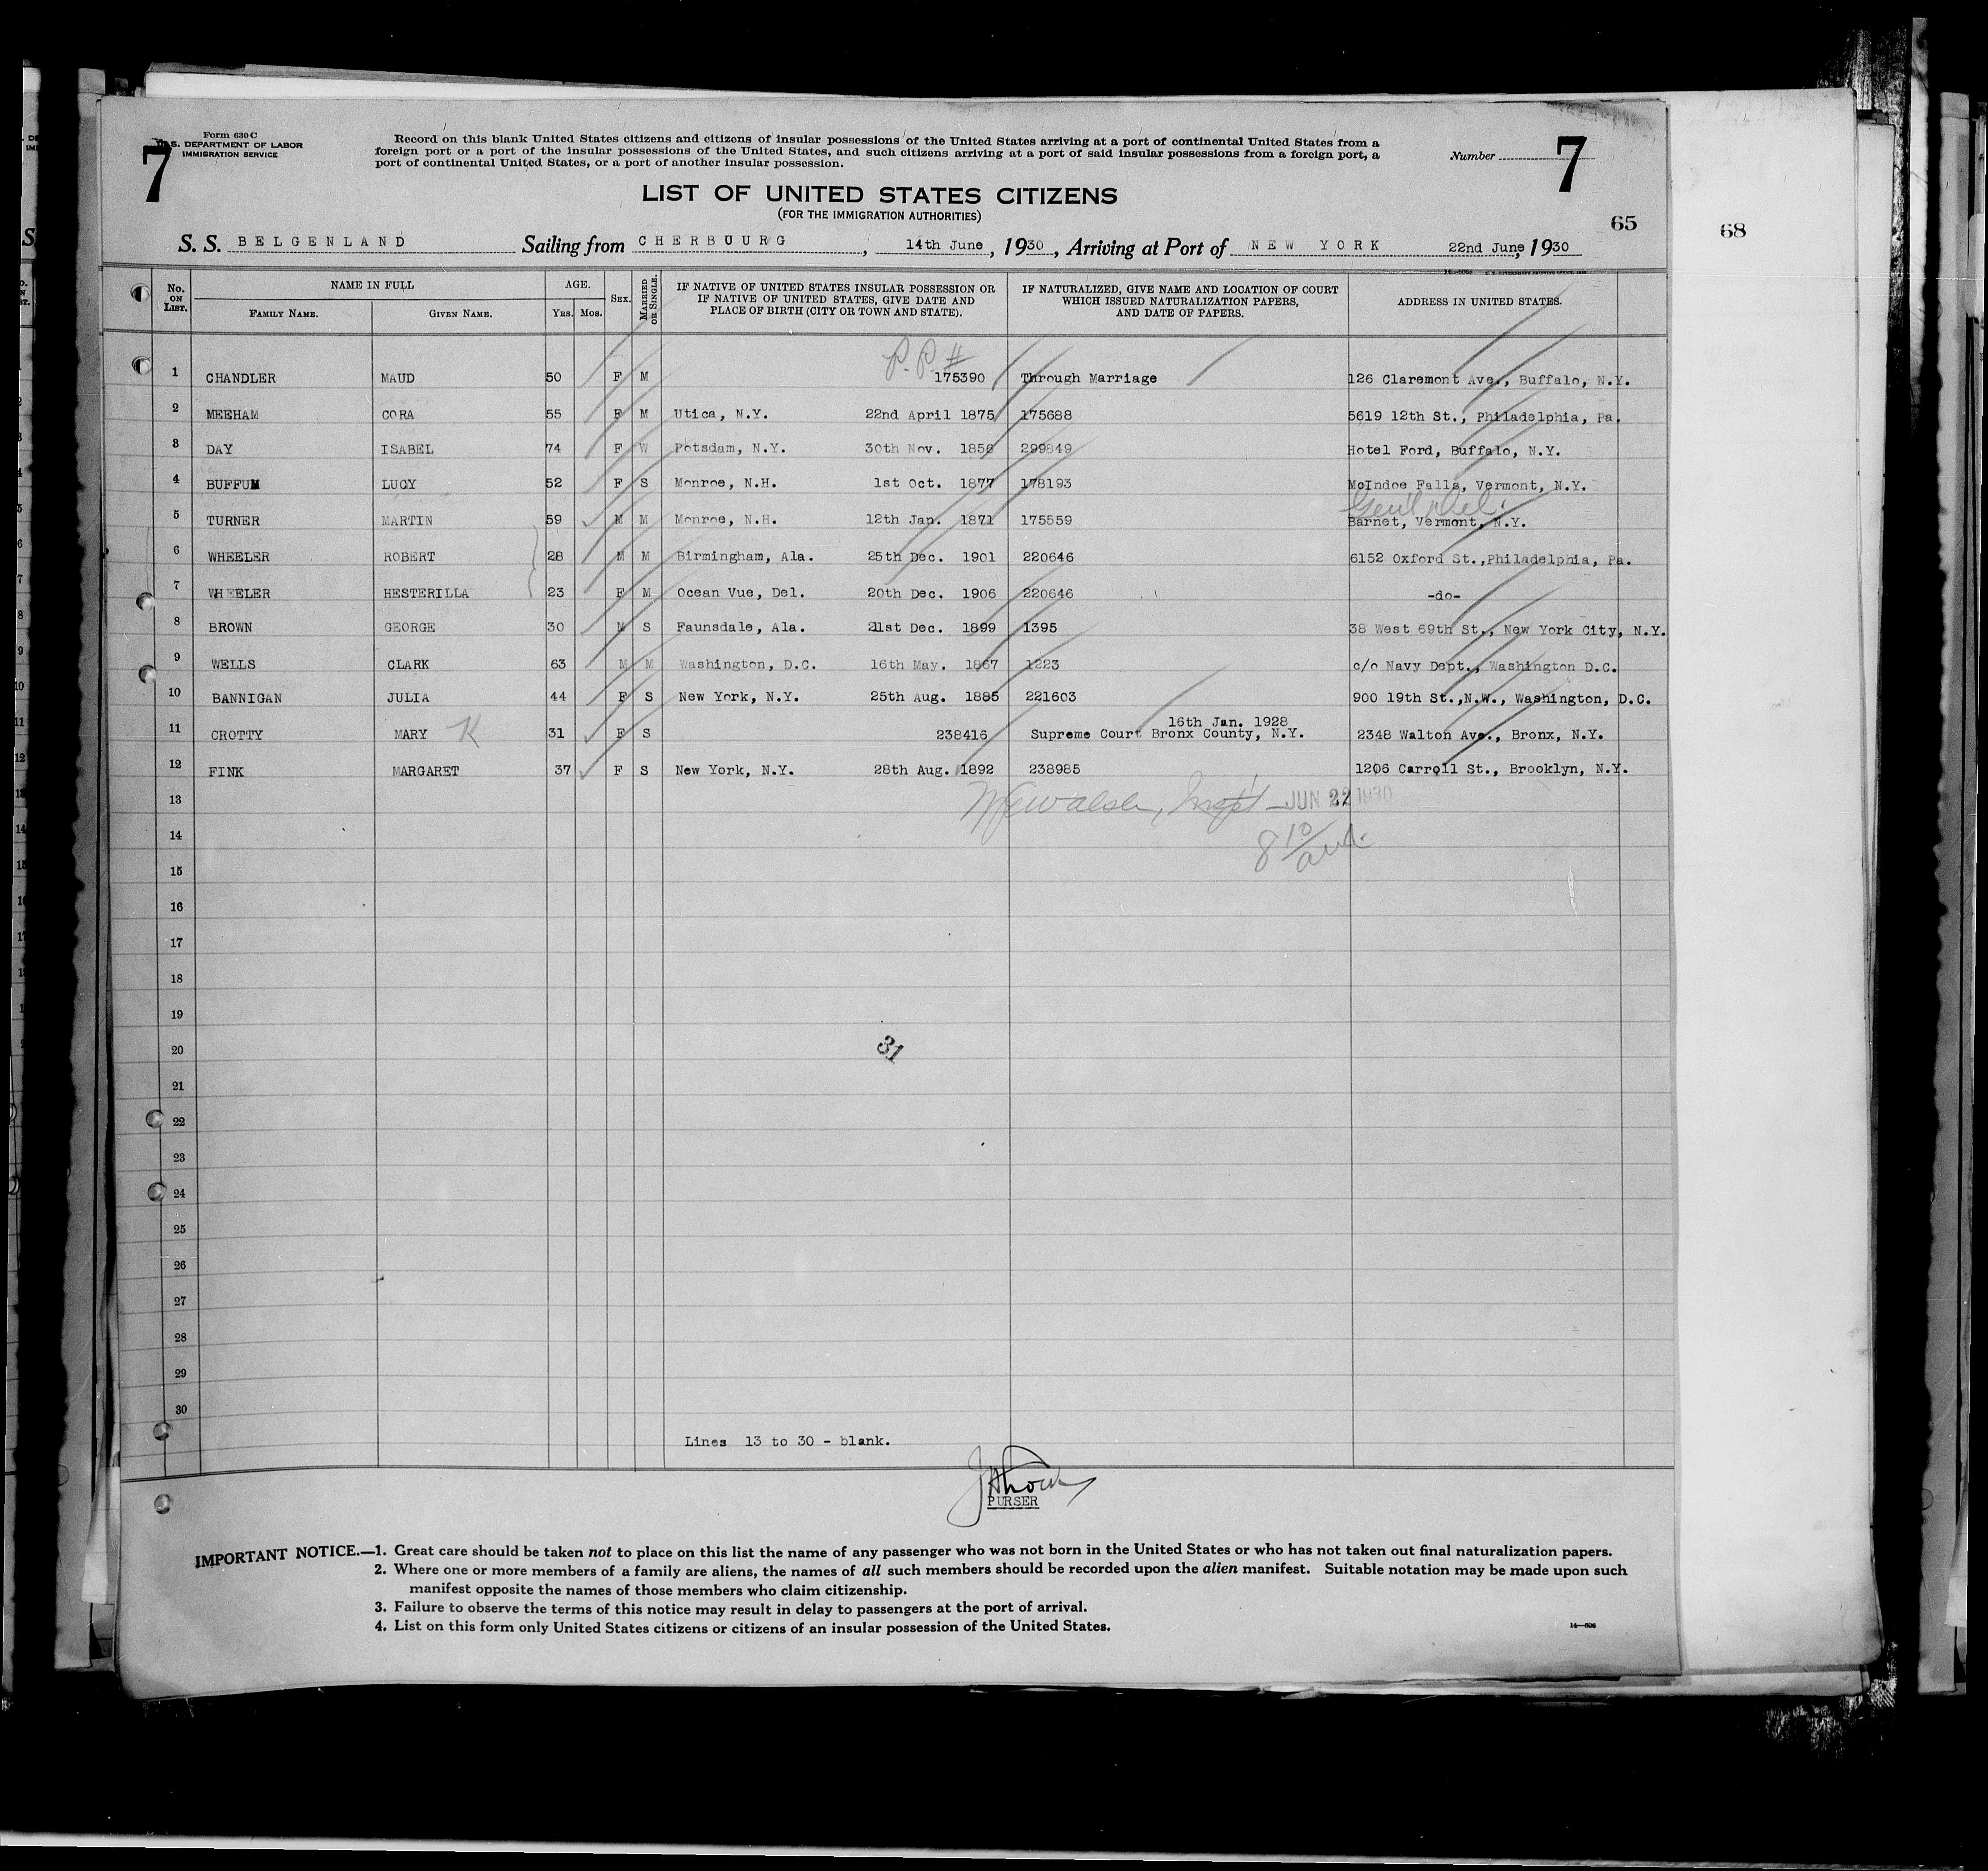 Form 630 C
U.S. DEPARTMENT OF LABOR
IMMIGRATION SERVICE
7
Record on this blank United States citizens and citizens of insular possessions of the United States arriving at a port of continental United States from a
foreign port or a port of the insular possessions of the United States, and such citizens arriving at a port of said insular possessions from a foreign port, a
port of continental United States, or a port of another insular possession.
Number 7
LIST OF UNITED STATES CITIZENS
(FOR THE IMMIGRATION AUTHORITIES)
65
68
S. S. BELGENLAND Sailing from CHERBOURG, 14th June, 1930, Arriving at Port of NEW YORK 22nd June, 1930
No. ON LIST. NAME IN FULL FAMILY NAME. GIVEN NAME. AGE. YRS. MOS. SEX. MARRIED OR SINGLE. IF NATIVE OF UNITED STATES INSULAR POSSESSION OR IF NATIVE OF UNITED STATES, GIVE DATE AND PLACE OF BIRTH (CITY OR TOWN AND STATE). IF NATURALIZED, GIVE NAME AND LOCATION OF COURT WHICH ISSUED NATURALIZATION PAPERS, AND DATE OF PAPERS. ADDRESS IN UNITED STATES.
P.P.#
1 CHANDLER MAUD 50 F M 175390 Through Marriage 126 Claremont Ave., Buffalo, N.Y.
2 MEEHAM CORA 55 F M Utica, N.Y. 22nd April 1875 175688 5619 12th St., Philadelphia, Pa.
3 DAY ISABEL 74 F W Potsdam, N.Y. 30th Nov. 1856 299849 Hotel Ford, Buffalo, N.Y.
4 BUFFUM LUCY 52 F S Monroe, N.H. 1st Oct. 1877 178193 McIndoe Falls, Vermont, N.Y.
Gen'l Del.
5 TURNER MARTIN 59 M M Monroe, N.H. 12th Jan. 1871 175559 Barnet, Vermont, N.Y.
6 WHEELER ROBERT 28 M M Birmingham, Ala. 25th Dec. 1901 220646 6152 Oxford St.,Philadelphia, Pa.
7 WHEELER HESTERILLA 23 F M Ocean Vue, Del. 20th Dec. 1906 220646 -do-
8 BROWN GEORGE 30 M S Faunsdale, Ala. 21st Dec. 1899 1395 38 West 69th St., New York City, N.Y.
9 WELLS CLARK 63 M M Washington, D.C. 16th May. 1867 1223 c/o Navy Dept., Washington D.C.
10 BANNIGAN JULIA 44 F S New York, N.Y. 25th Aug. 1885 221603 900 19th St.,N.W., Washington, D.C.
16th Jan. 1928
11 CROTTY MARY K 31 F S 238416 Supreme Court Bronx County, N.Y. 2348 Walton Ave., Bronx, N.Y.
12 FINK MARGARET 37 F S New York, N.Y. 28th Aug. 1892 238985 1206 Carroll St., Brooklyn, N.Y.
13 Walsh, Inspt - JUN 22 1930
14 8 10/am
15
16
17
18
19
20 31
21
22
23
24
25
26
27
28
29
30
Lines 13 to 30 - blank.
PURSER
IMPORTANT NOTICE.—1. Great care should be taken not to place on this list the name of any passenger who was not born in the United States or who has not taken out final naturalization papers.
2. Where one or more members of a family are aliens, the names of all such members should be recorded upon the alien manifest. Suitable notation may be made upon such
manifest opposite the names of those members who claim citizenship.
3. Failure to observe the terms of this notice may result in delay to passengers at the port of arrival.
4. List on this form only United States citizens or citizens of an insular possession of the United States.
14—606